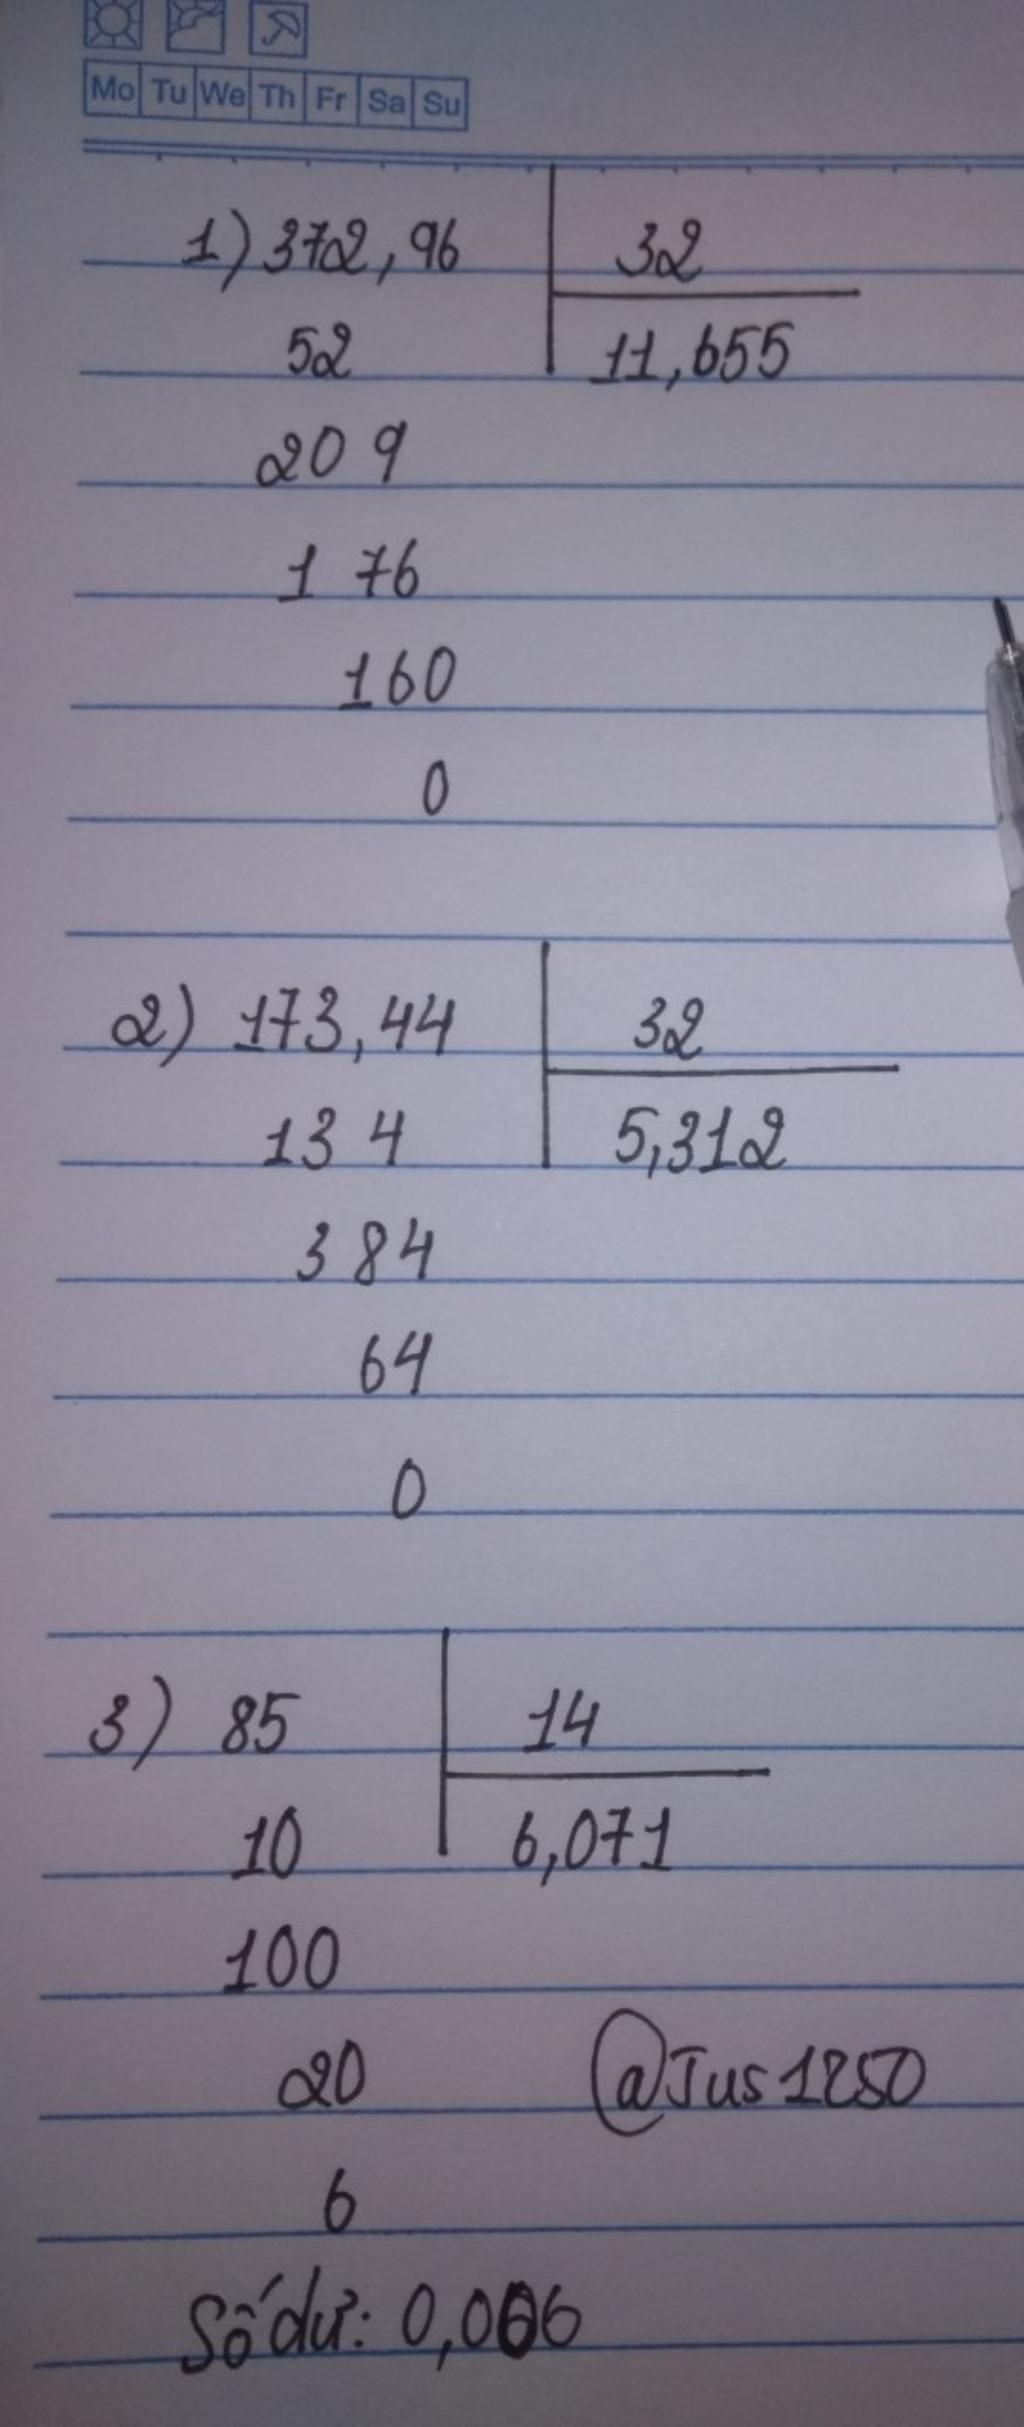 Mo Tu We Th Fr Sa Su
1) 372,96 32
52 11,655
20 9
1 76
160
0
2) 173,44 32
13 4 5,312
3 84
64
0
3) 85 14
10 6,071
100
20 @Jus1250
6
Số dư: 0,006